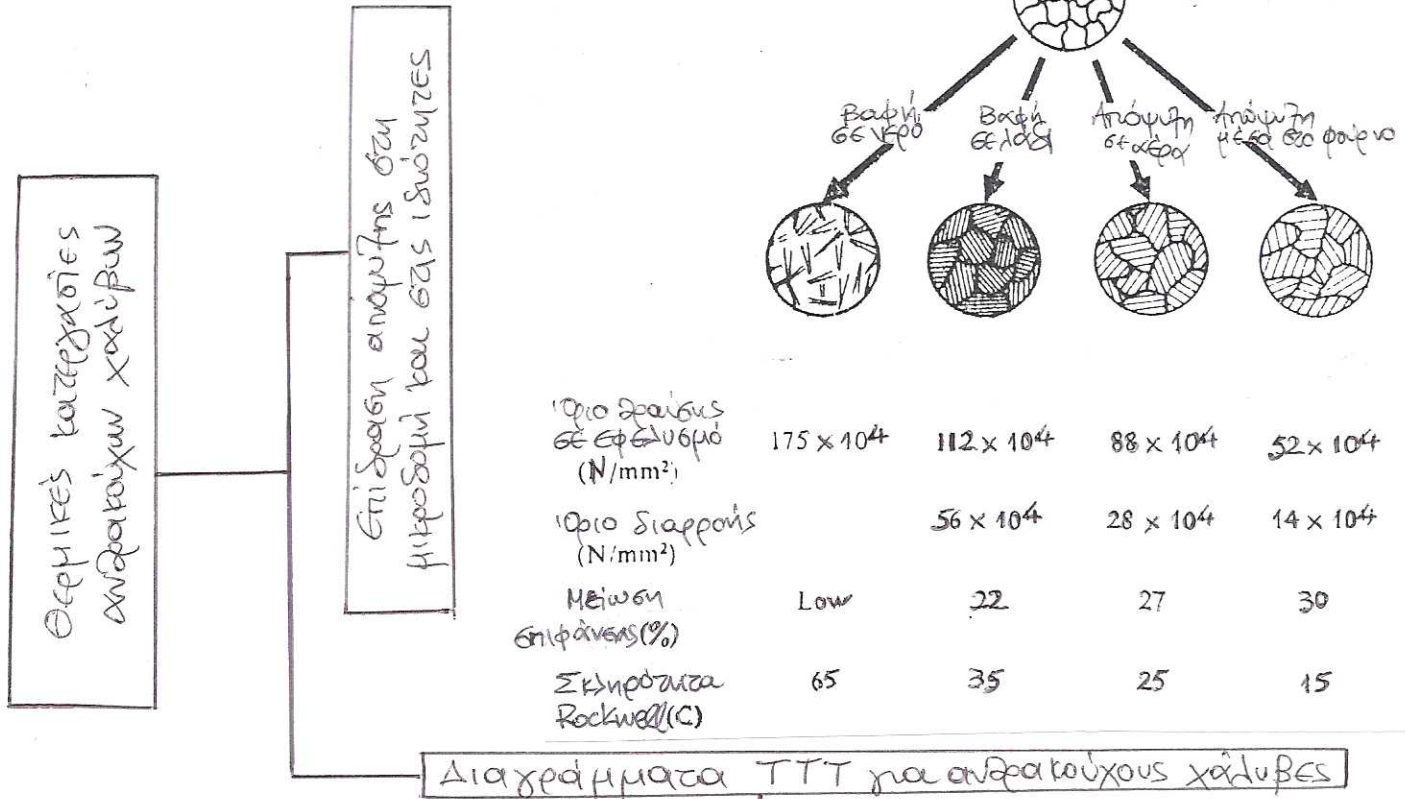 Θερμικές κατεργασίες
ανθρακούχων χαλύβων
Επίδραση απόψυξης στη
μικροδομή και στις ιδιότητες
Βαφή
σε νερό
Βαφή
σε λάδι
Απόψυξη
σε αέρα
Απόψυξη
μέσα στο φούρνο
Όριο θραύσης
σε εφελυσμό
(N/mm²)
175 × 10⁴ 112 × 10⁴ 88 × 10⁴ 52 × 10⁴
Όριο διαρροής
(N/mm²)
56 × 10⁴ 28 × 10⁴ 14 × 10⁴
Μείωση
επιφάνειας (%)
Low 22 27 30
Σκληρότητα
Rockwell (C)
65 35 25 15
Διαγράμματα TTT για ανθρακούχους χάλυβες